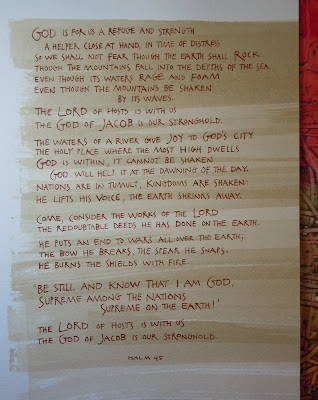 GOD IS FOR US A REFUGE AND STRENGTH
A HELPER CLOSE AT HAND, IN TIME OF DISTRESS
SO WE SHALL NOT FEAR THOUGH THE EARTH SHALL ROCK
THOUGH THE MOUNTAINS FALL INTO THE DEPTHS OF THE SEA
EVEN THOUGH ITS WATERS RAGE AND FOAM
EVEN THOUGH THE MOUNTAINS BE SHAKEN
BY ITS WAVES.
THE LORD OF HOSTS IS WITH US
THE GOD OF JACOB IS OUR STRONGHOLD.
THE WATERS OF A RIVER GIVE JOY TO GOD'S CITY
THE HOLY PLACE WHERE THE MOST HIGH DWELLS
GOD IS WITHIN, IT CANNOT BE SHAKEN
GOD WILL HELP IT AT THE DAWNING OF THE DAY.
NATIONS ARE IN TUMULT, KINGDOMS ARE SHAKEN:
HE LIFTS HIS VOICE, THE EARTH SHRINKS AWAY.
COME, CONSIDER THE WORKS OF THE LORD
THE REDOUBTABLE DEEDS HE HAS DONE ON THE EARTH.
HE PUTS AN END TO WARS ALL OVER THE EARTH;
THE BOW HE BREAKS, THE SPEAR HE SNAPS,
HE BURNS THE SHIELDS WITH FIRE.
'BE STILL AND KNOW THAT I AM GOD,
SUPREME AMONG THE NATIONS
SUPREME ON THE EARTH!'
THE LORD OF HOSTS IS WITH US
THE GOD OF JACOB IS OUR STRONGHOLD.
PSALM 45